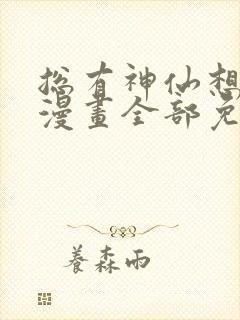 总有神仙想
漫畫全部免
養森雨